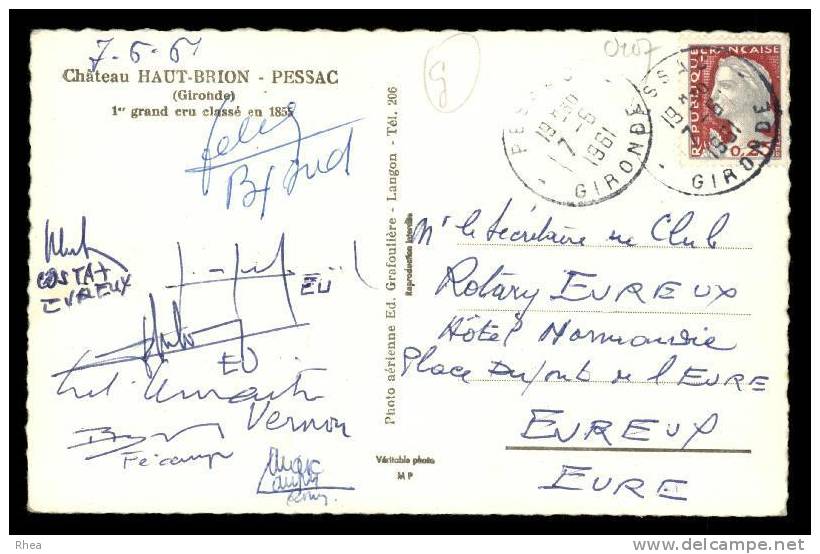 7-6-61
Château HAUT-BRION - PESSAC
(Gironde)
1er grand cru classé en 1855
COSTA
EVREUX
EU
EU
Vernon
Fécamp
Photo aérienne Ed. Grafoulière - Langon - Tél. 206
Reproduction interdite
Véritable photo
M P
PESSAC
19H30
7-6
1961
GIRONDE
PESSAC
19H30
7-6
1961
GIRONDE
REPUBLIQUE FRANCAISE
0,20
Mr le Secrétaire du Club
Rotary EVREUX
Hôtel Normandie
Place Dupont de l'EURE
EVREUX
EURE
Rhea
delcampe.net